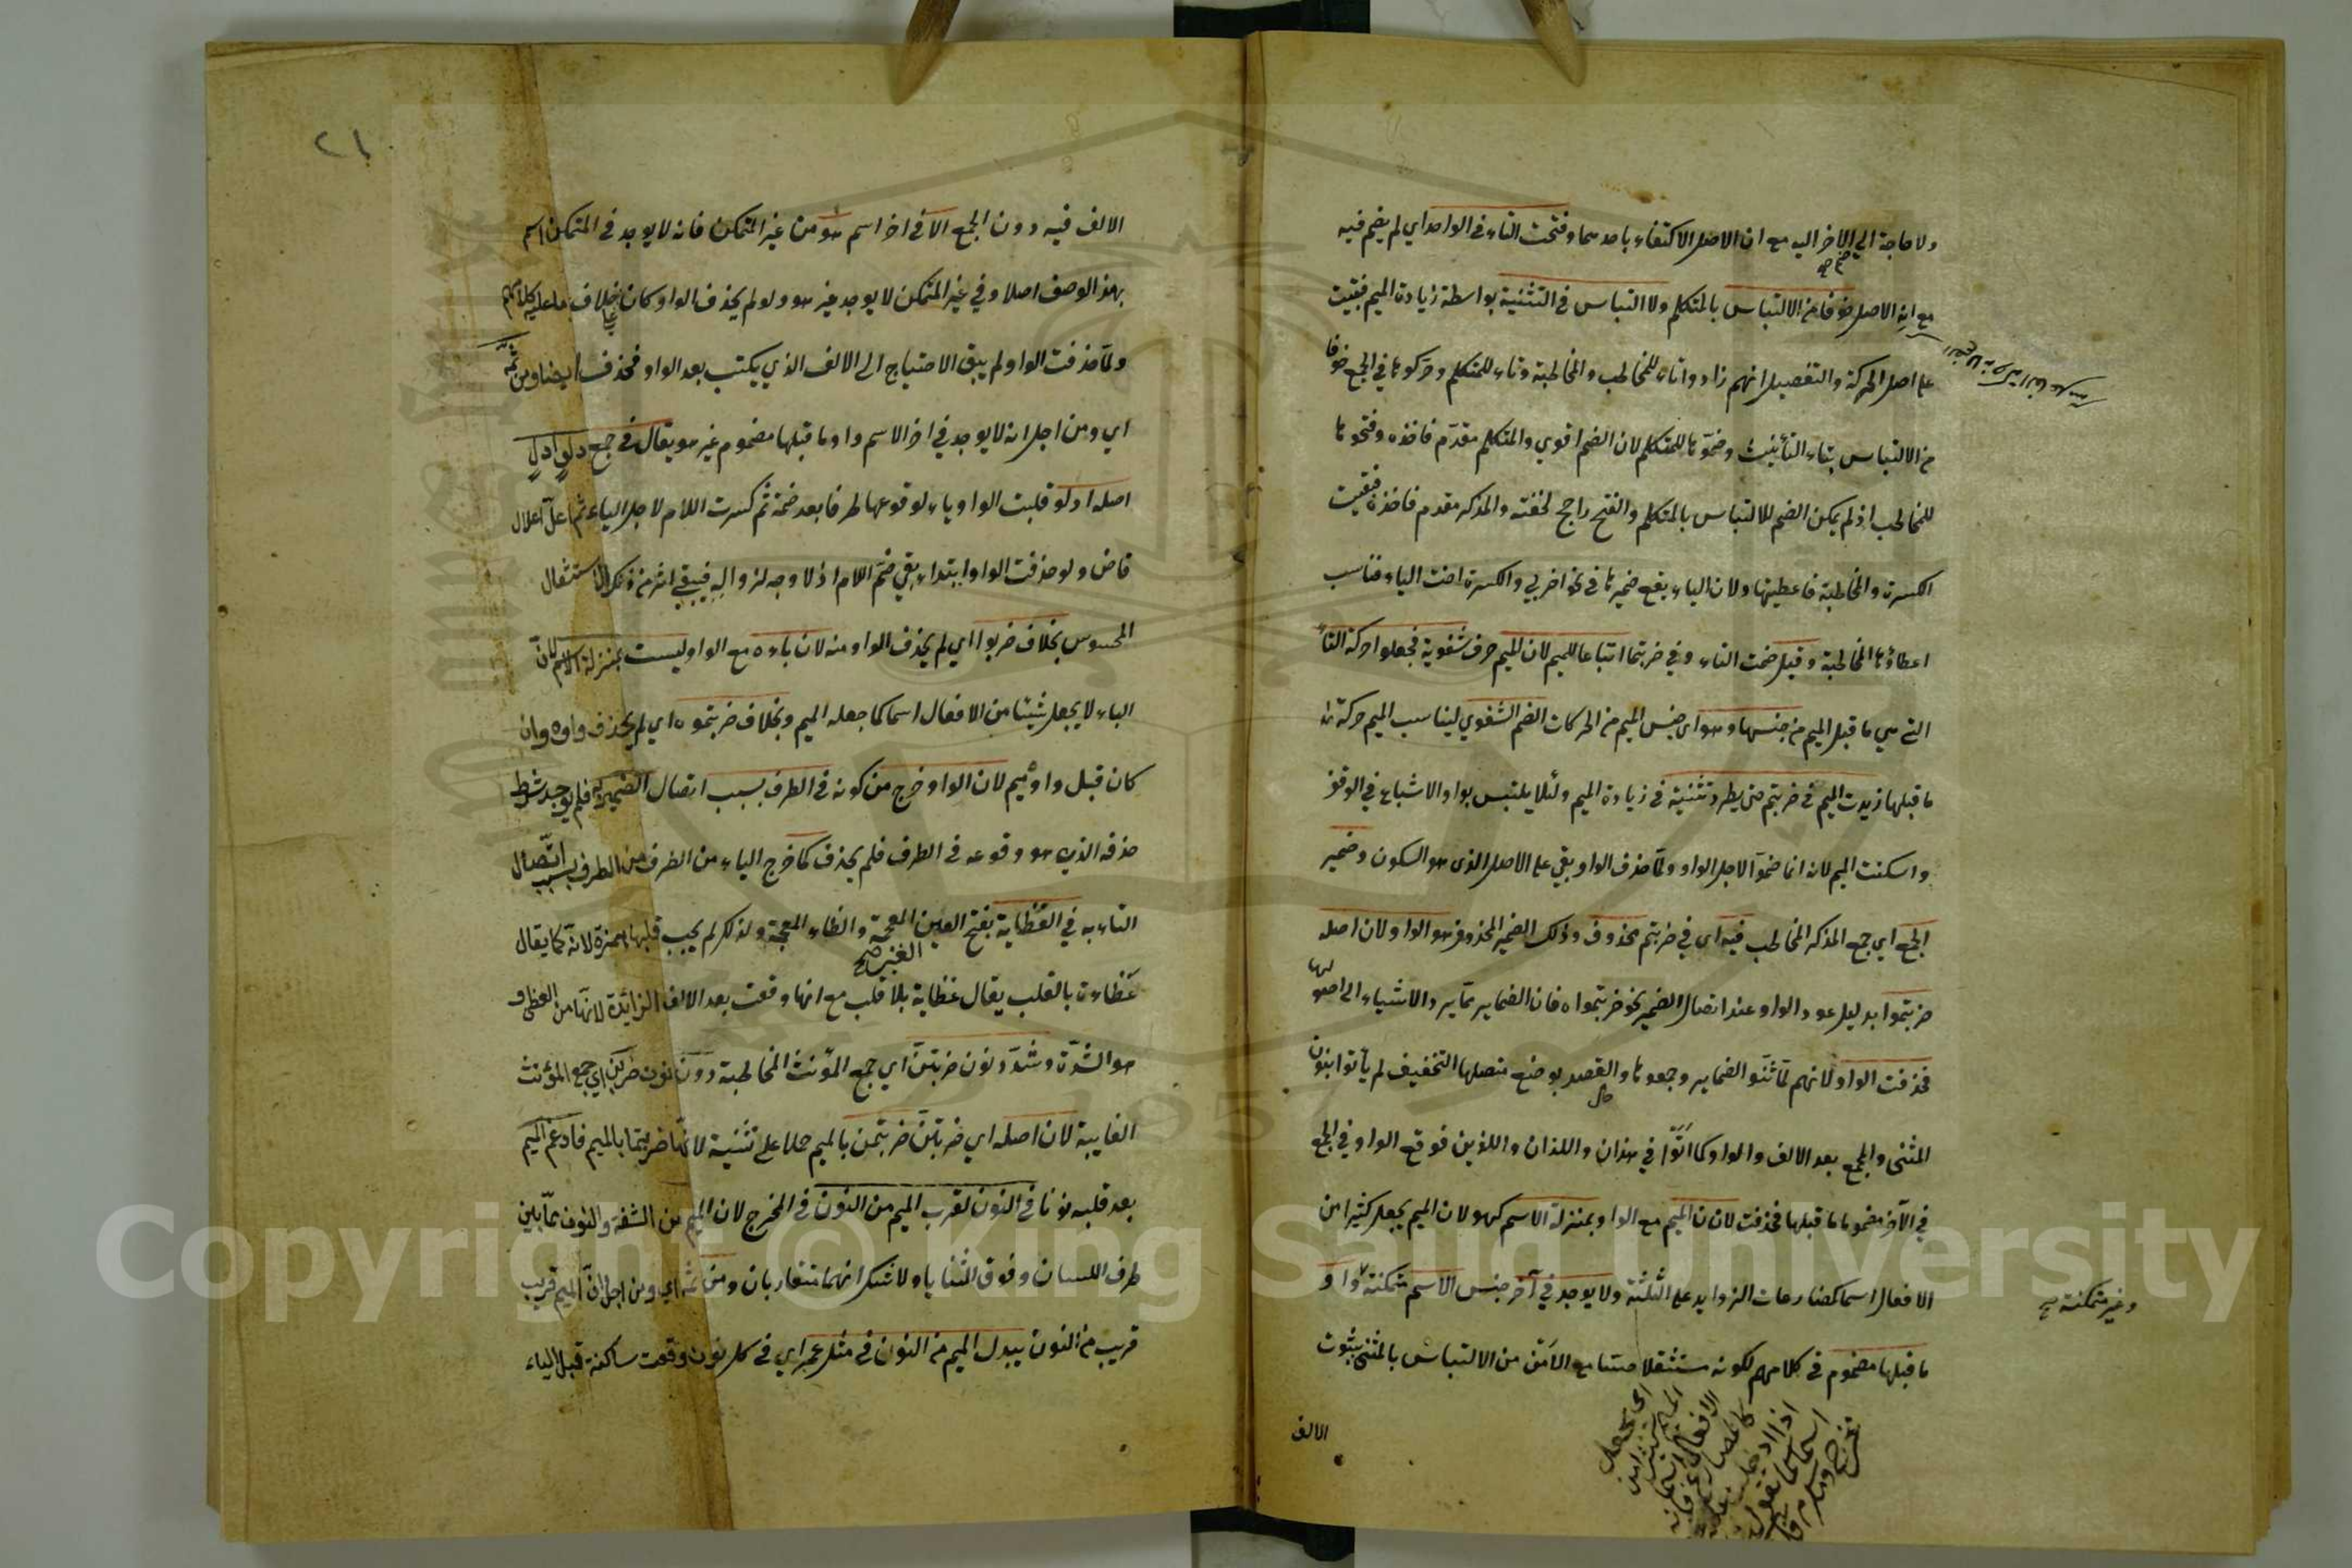 ولا حاجة الي الاخر اليه مع ان الاصل الاكتفاء باحدهما وفتحت التاء في الواحد اي لم يضم فيه
مع انه الاصل خوفا من الالتباس بالمتكلم ولا التباس في التثنية بواسطة زيادة الميم فبقيت
على اصل الحركة والتفصيل انهم زادوا تاء للمخاطب والمخاطبة وتاء للمتكلم وحركوها في الجمع خوفا
من الالتباس بتاء التأنيث وضموها للمتكلم لان الضم اقوي والمتكلم مقدم فاخذه وفتحوها
للمخاطب اذ لم يمكن الضم للالتباس بالمتكلم والفتح راجح لخفته والمذكر مقدم فاخذه فبقيت
الكسرة والمخاطبة فاعطيتها ولان الياء يقع ضميرها في نحو اضربي والكسرة اخت الياء فناسب
اعطاؤها المخاطبة وقيل ضمت التاء وفي ضربتما اتباعا للميم لان الميم حرف شفوية فجعلوا حركة التاء
التي هي ما قبل الميم من جنسها وهو اي جنس الميم من الحركات الضم الشفوي ليناسب الميم حركة ما
ما قبلها زيدت الميم في ضربتم حتى يطرد تثنية في زيادة الميم ولئلا يلتبس بواو الاشباع في الوقف
واسكنت الميم لانه انما ضم الاجل الواو ولما حذف الواو بقي على الاصل الذى هو السكون وضمير
الجمع اي جمع المذكر المخاطب فيه اى في ضربتم محذوف وذلك الضمير المحذوف هو الواو لان اصله
ضربتموا بدليل عود الواو عند اتصال الضمير نحو ضربتموه فان الضمائر مما يرد الاشياء الى اصولها
فحذفت الواو لانهم لما ثنوا الضماير وجمعوها والقصد بوضع متصلها التخفيف لم يأتوا بنون
المثنى والجمع بعد الالف والواو كما اتوا في هذان واللذان واللذين فوقع الواو في الجمع
في الآخر مضموما ما قبلها فحذفت لان الميم مع الواو بمنزلة الاسم كهو لان الميم يجعل كثيرا من
الافعال اسما كمضارعات الزوايد على الثلثة ولا يوجد في آخر جنس الاسم متمكنة واو
وغير متمكنة صح
ما قبلها مضموم في كلامهم لكونه مستثقلا حتما مع الامن من الالتباس بالمثنى بثبوت
الالف
٢١
الالف فيه دون الجمع الا في اخر اسم هو من غير المتمكن فانه لا يوجد في المتمكن اسم
بهذا الوصف اصلا وفي غير المتمكن لا يوجد غير هو ولو لم يحذف الواو كان خلاف ما عليه كلامهم
ولما حذفت الواو لم يبق الاحتياج الى الالف الذي يكتب بعد الواو فحذف ايضا ومن ثمه
اي ومن اجل انه لا يوجد في اخر الاسم واو ما قبلها مضموم غير هو يقال في جمع دلو ادل
اصله ادلو قلبت الواو ياء لوقوعها طرفا بعد ضمة ثم كسرت اللام لاجل الياء ثم اعل اعلال
قاض ولو حذفت الواو ابتداء بقي ضم اللام اذ لا وجه لزواله فيبقى اثر من ذلك الاستثقال
المحسوس بخلاف ضربوا اي لم يحذف الواو منه لان باءه مع الواو ليست بمنزلة الاسم لان
الباء لا يجعل شيئا من الافعال اسما كما جعله الميم وبخلاف ضربتموه اي لم يحذف واوه وان
كان قبل واوه ميم لان الواو خرج من كونه في الطرف بسبب اتصال الضمير به فلم يوجد شرط
حذفه الذي هو وقوعه في الطرف فلم يحذف كما خرج الياء من الطرف من الطرف بسبب اتصال
التاء به في العظاية بفتح العين المعجمة والظاء المعجمة ولذلك لم يجب قلبها همزة لانه كما يقال
عظاءة بالقلب يقال عظاية بلا قلب مع انها وقعت بعد الالف الزائدة لانها من العظى و
هو الشدة وشدد نون ضربتن اي جمع المؤنث المخاطبة دون نون ضربن اي جمع المؤنث
الغايبة لان اصله اي ضربتن ضربتمن بالميم حملا على تثنية لانها ضربتما بالميم فادغم الميم
بعد قلبه نونا في النون لقرب الميم من النون في المخرج لان الميم من الشفة والنون مما بين
طرف اللسان وفوق الثنايا ولا شك انهما متقاربان ومن ثمه اي ومن اجل ان الميم قريب
قريب من النون يبدل الميم من النون في مثل عمبر اي في كل نون وقعت ساكنة قبل الباء
Copyright © King Saud University
1957